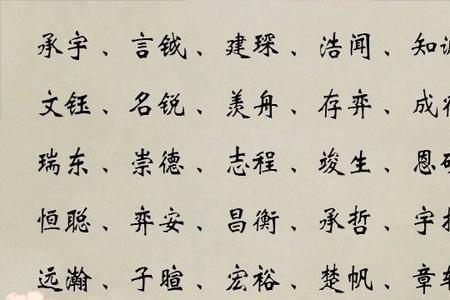 承宇、言钺、建琛、浩闻、知
文钰、名锐、羡舟、存弈、成
瑞东、崇德、志程、竣生、恩
恒聪、弈安、昌衡、承哲、宇
远瀚、子暄、宏裕、楚帆、章